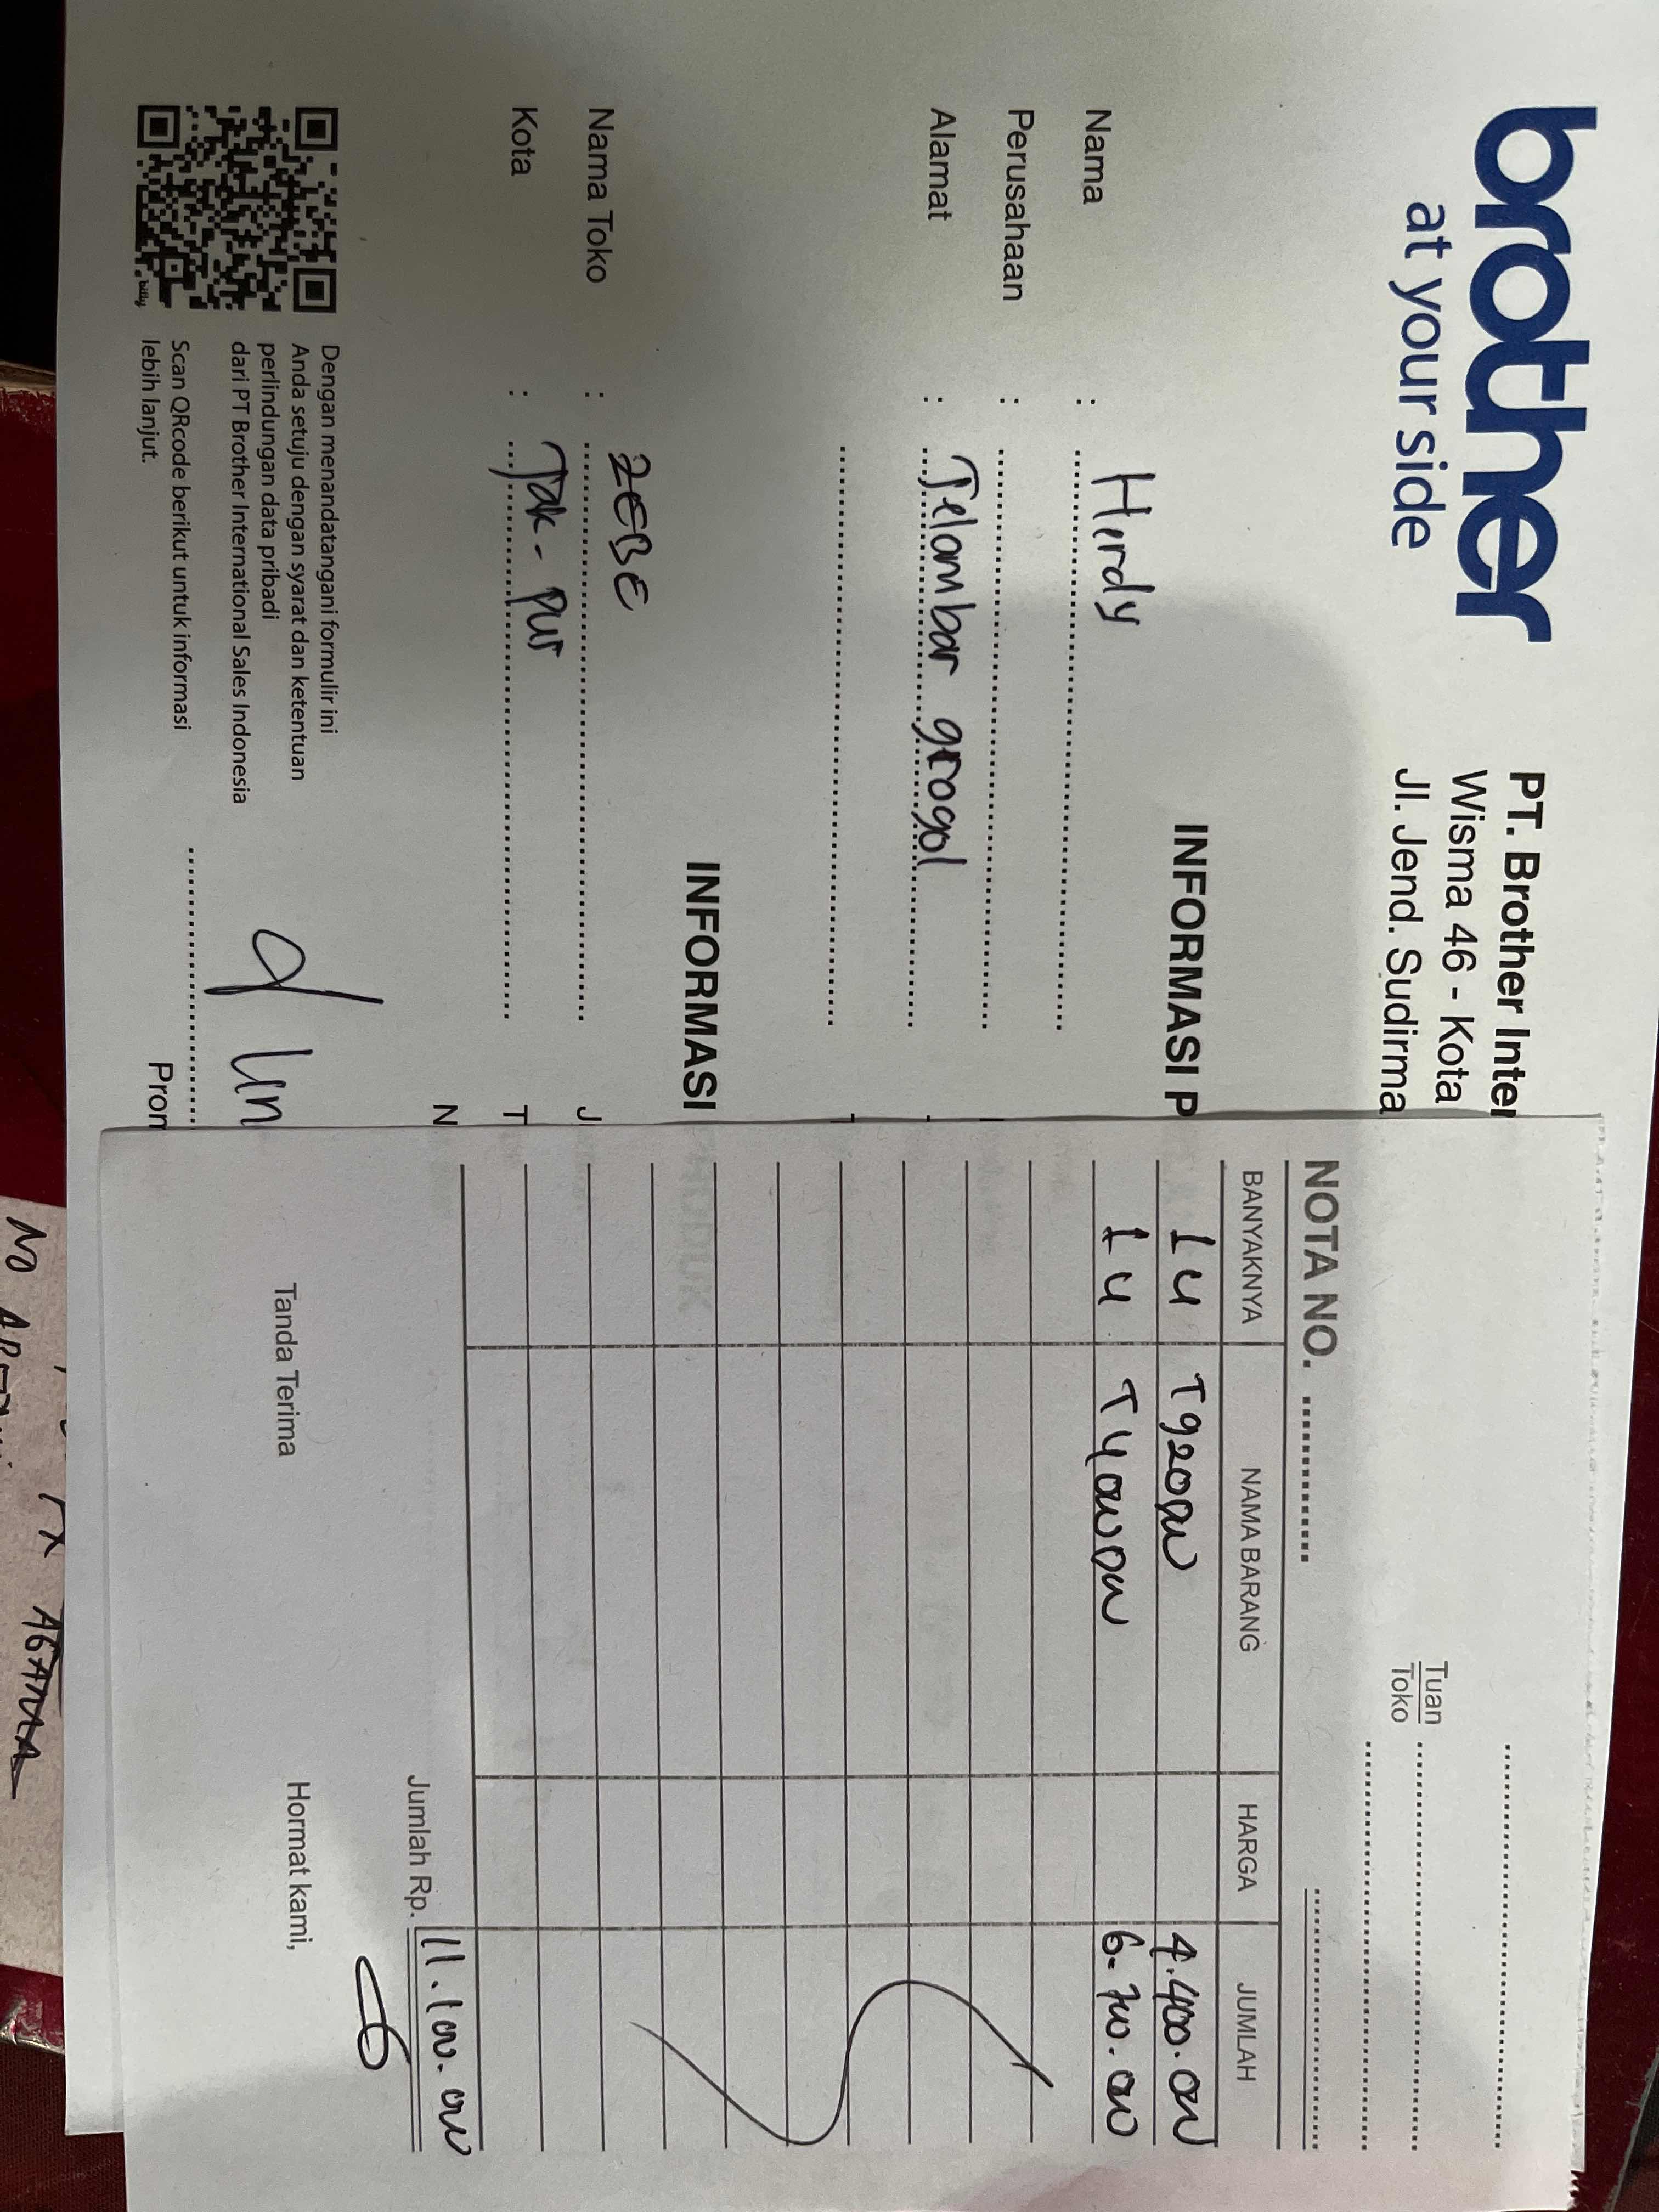 brother
at your side
PT. Brother Inter
Wisma 46 - Kota
Jl. Jend. Sudirma
INFORMASI P
Nama : Herdy
Perusahaan :
Alamat : Jelambar grogol
INFORMASI
Nama Toko : ZEBE
Kota : Jak-pus
J
T
N
Dengan menandatangani formulir ini
Anda setuju dengan syarat dan ketentuan
perlindungan data pribadi
dari PT Brother International Sales Indonesia
Scan QRcode berikut untuk informasi
lebih lanjut.
bitly
Prom
Tuan
Toko
NOTA NO.
BANYAKNYA NAMA BARANG HARGA JUMLAH
1 U T920DW 4.400.000
1 U T4000DW 6.700.000
Jumlah Rp. 11.100.000
Tanda Terima Hormat kami,
No
AGAMA